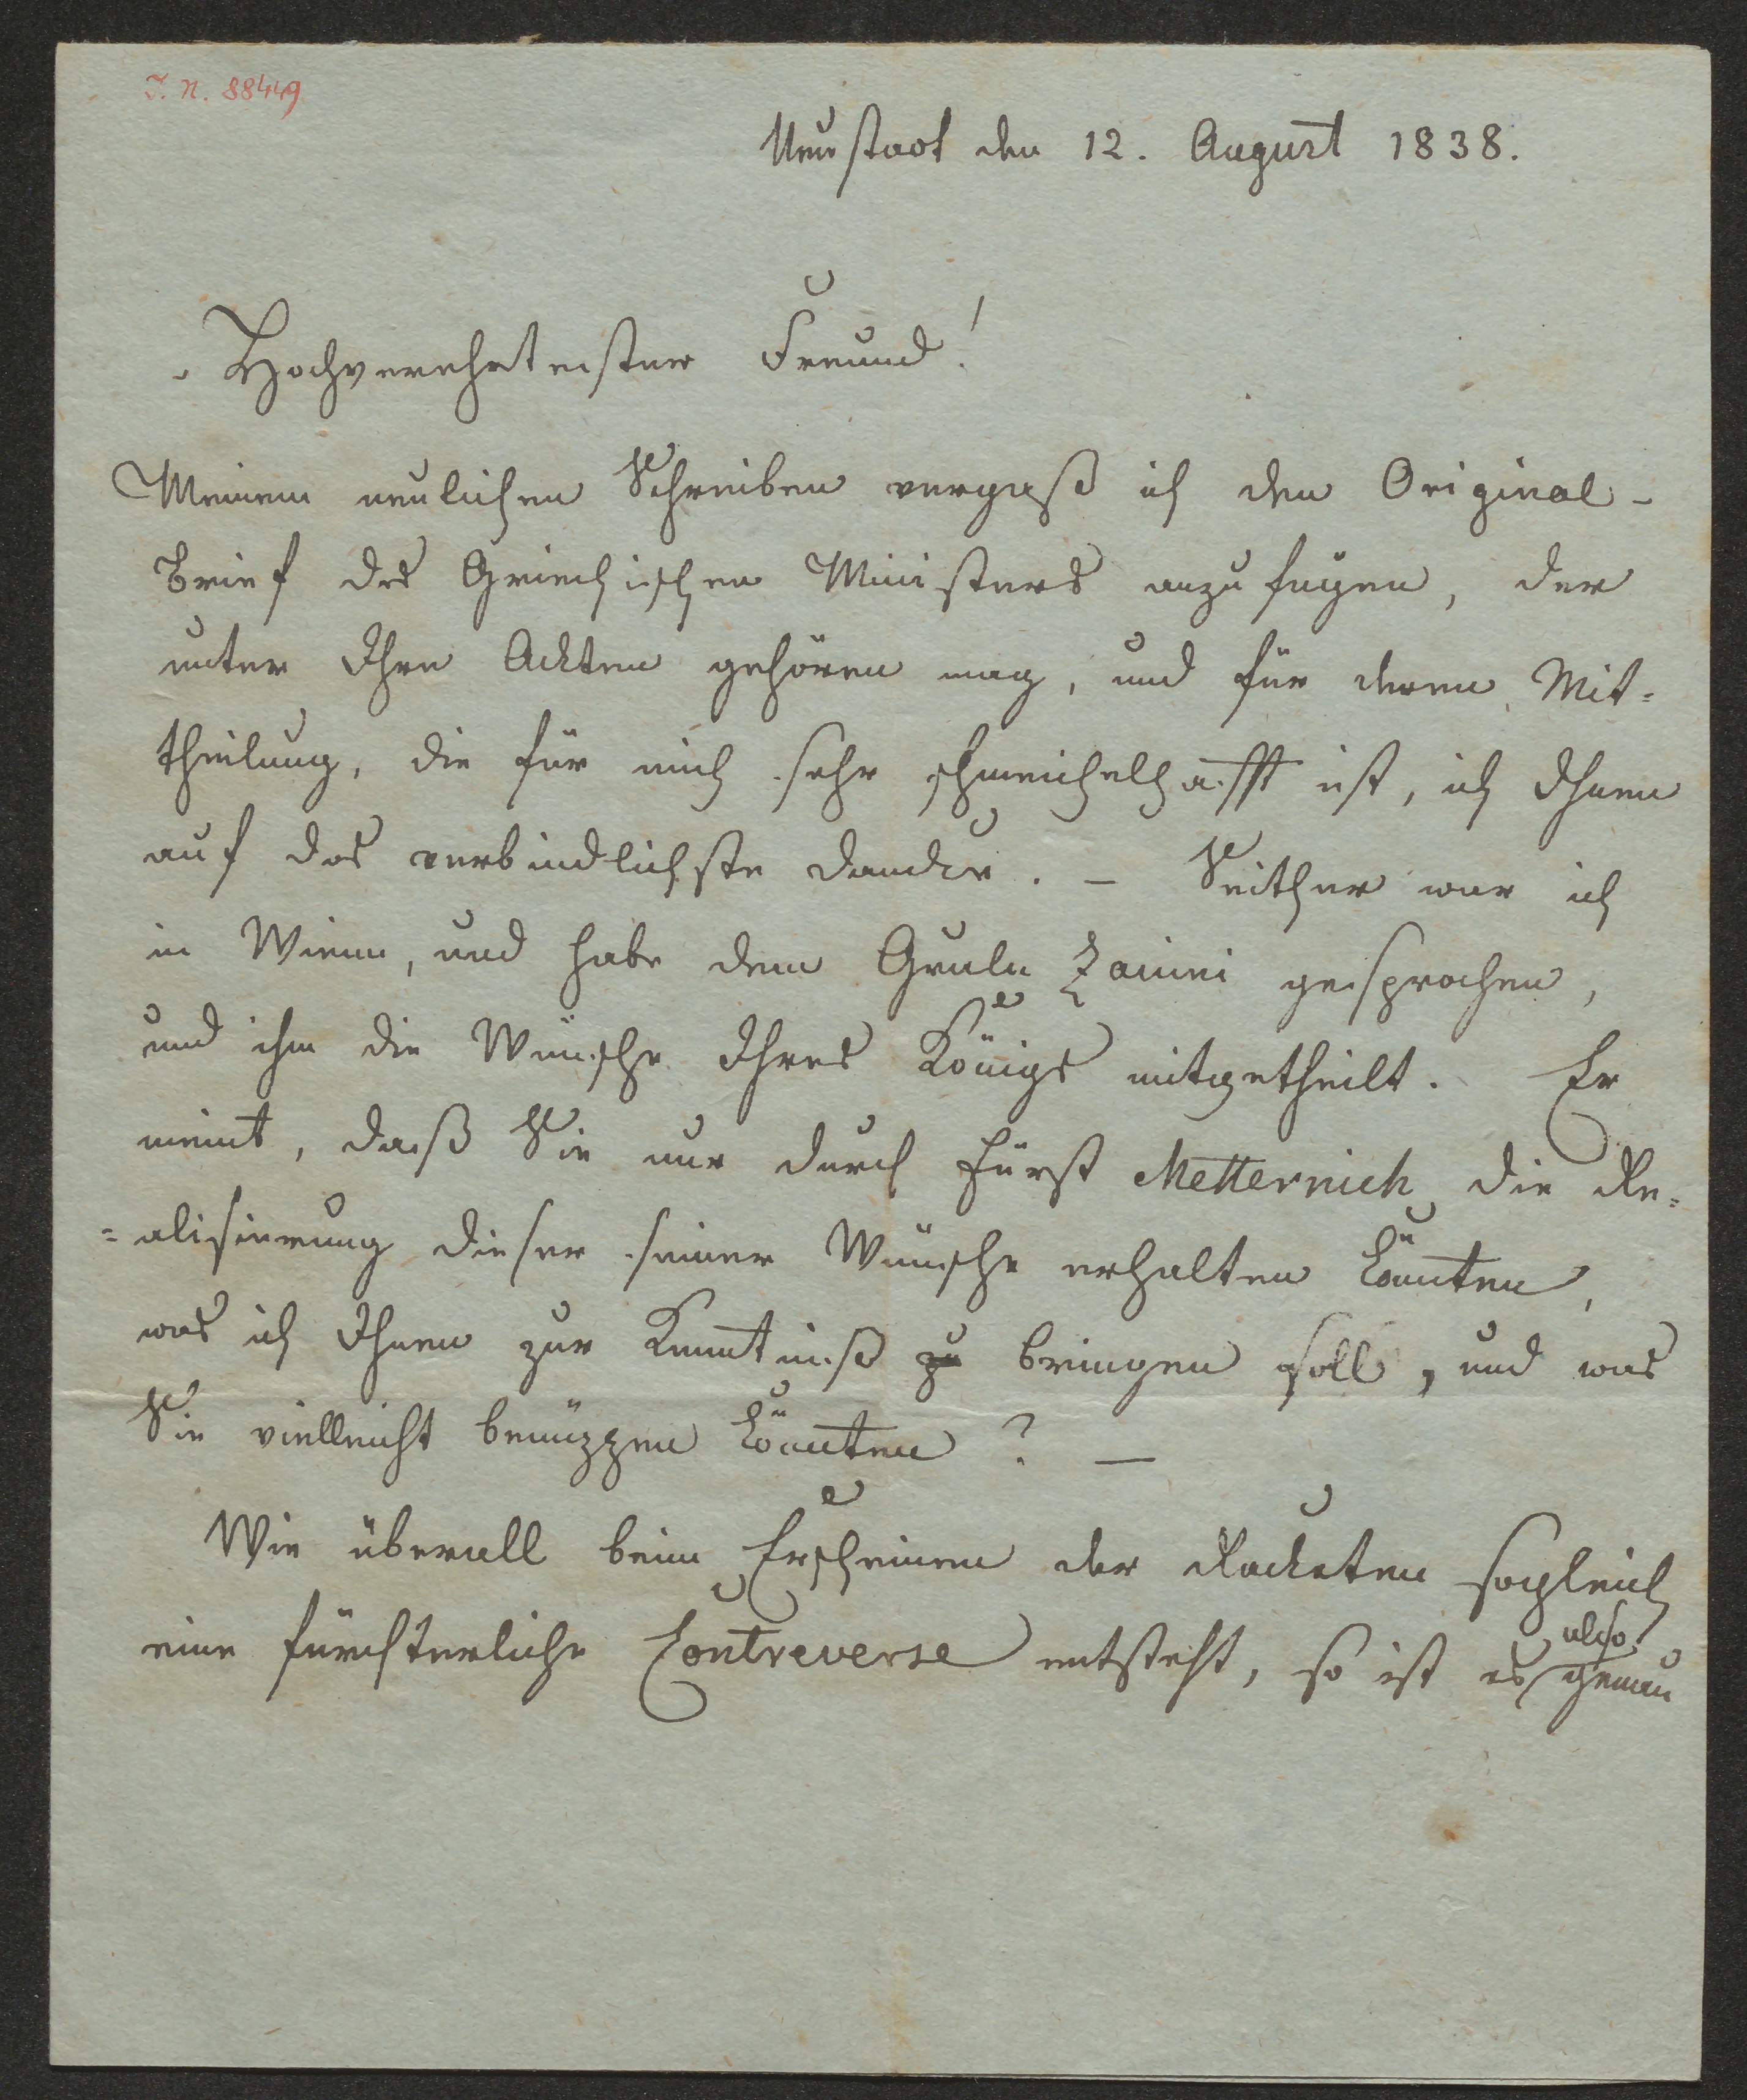 I. N. 88449
Neustadt den 12. August 1838.
Hochverehrtester Freund!
Meinem neulichen Schreiben vergaß ich den Original-
brief des Griechischen Ministers anzufügen, der
unter Ihre Ackten gehören mag, und für deren Mit=
theilung, die für mich sehr schmeichelhafft ist, ich Ihnen
auf das verbindlichste dancke. – Seither war ich
in Wienn, und habe dem Grale Zanini gesprochen,
und ihm die Wünsche Ihres Königs mitgetheilt. Er
meint, daß Sie nur durch Fürst Metternich die Re=
=alisierung dieser seiner Wünsche erhalten könnten,
was ich Ihnen zur Kenntniß zu bringen soll, und was
Sie vielleicht benüzzen könnten? –
Wie überall beim Erscheinen der Racketen sogleich
eine fürchterliche Contreverse entsteht, so ist es also genau